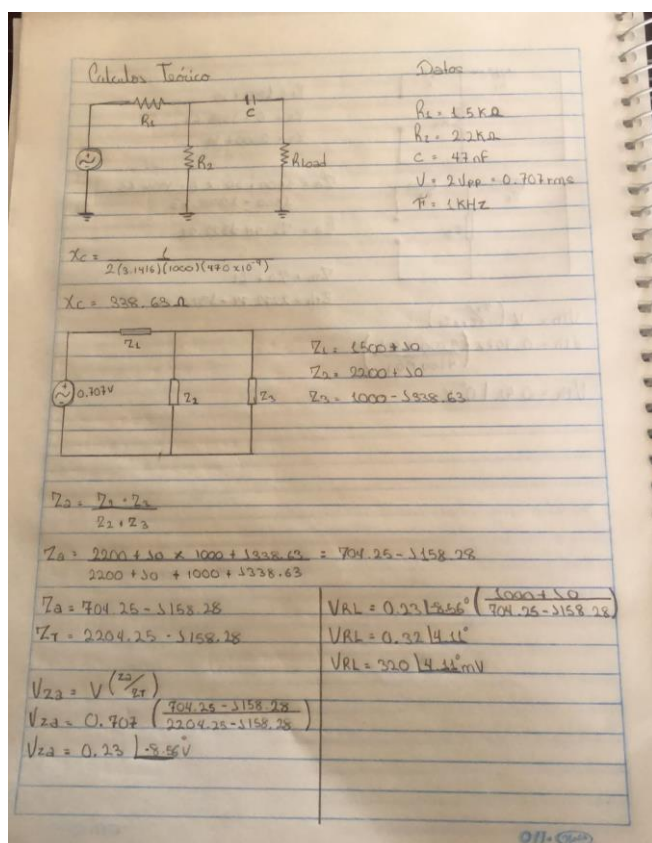 Calculos Teórico
Datos
R1
C
R2
Rload
R1 = 1.5KΩ
R2 = 2.2KΩ
C = 47nF
V = 2Vpp = 0.707rms
F = 1KHz
Xc = 1 / 2(3.1416)(1000)(470x10⁻⁹)
Xc = 338.63 Ω
Z1
0.707V
Z2
Z3
Z1 = 1500 + J0
Z2 = 2200 + J0
Z3 = 1000 - J338.63
Za = Z2 · Z3 / Z2 + Z3
Za = 2200 + J0 x 1000 + J338.63 / 2200 + J0 + 1000 + J338.63 = 704.25 - J158.28
Za = 704.25 - J158.28
ZT = 2204.25 - J158.28
Vza = V (Za/ZT)
Vza = 0.707 (704.25 - J158.28 / 2204.25 - J158.28)
Vza = 0.23 |-8.56° V
VRL = 0.23 |-8.56° (1000 + J0 / 704.25 - J158.28)
VRL = 0.32 |4.11°
VRL = 320 |4.11° mV